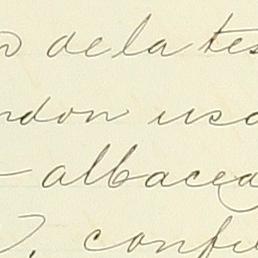 de la tes
ndon uso
albacea
confi